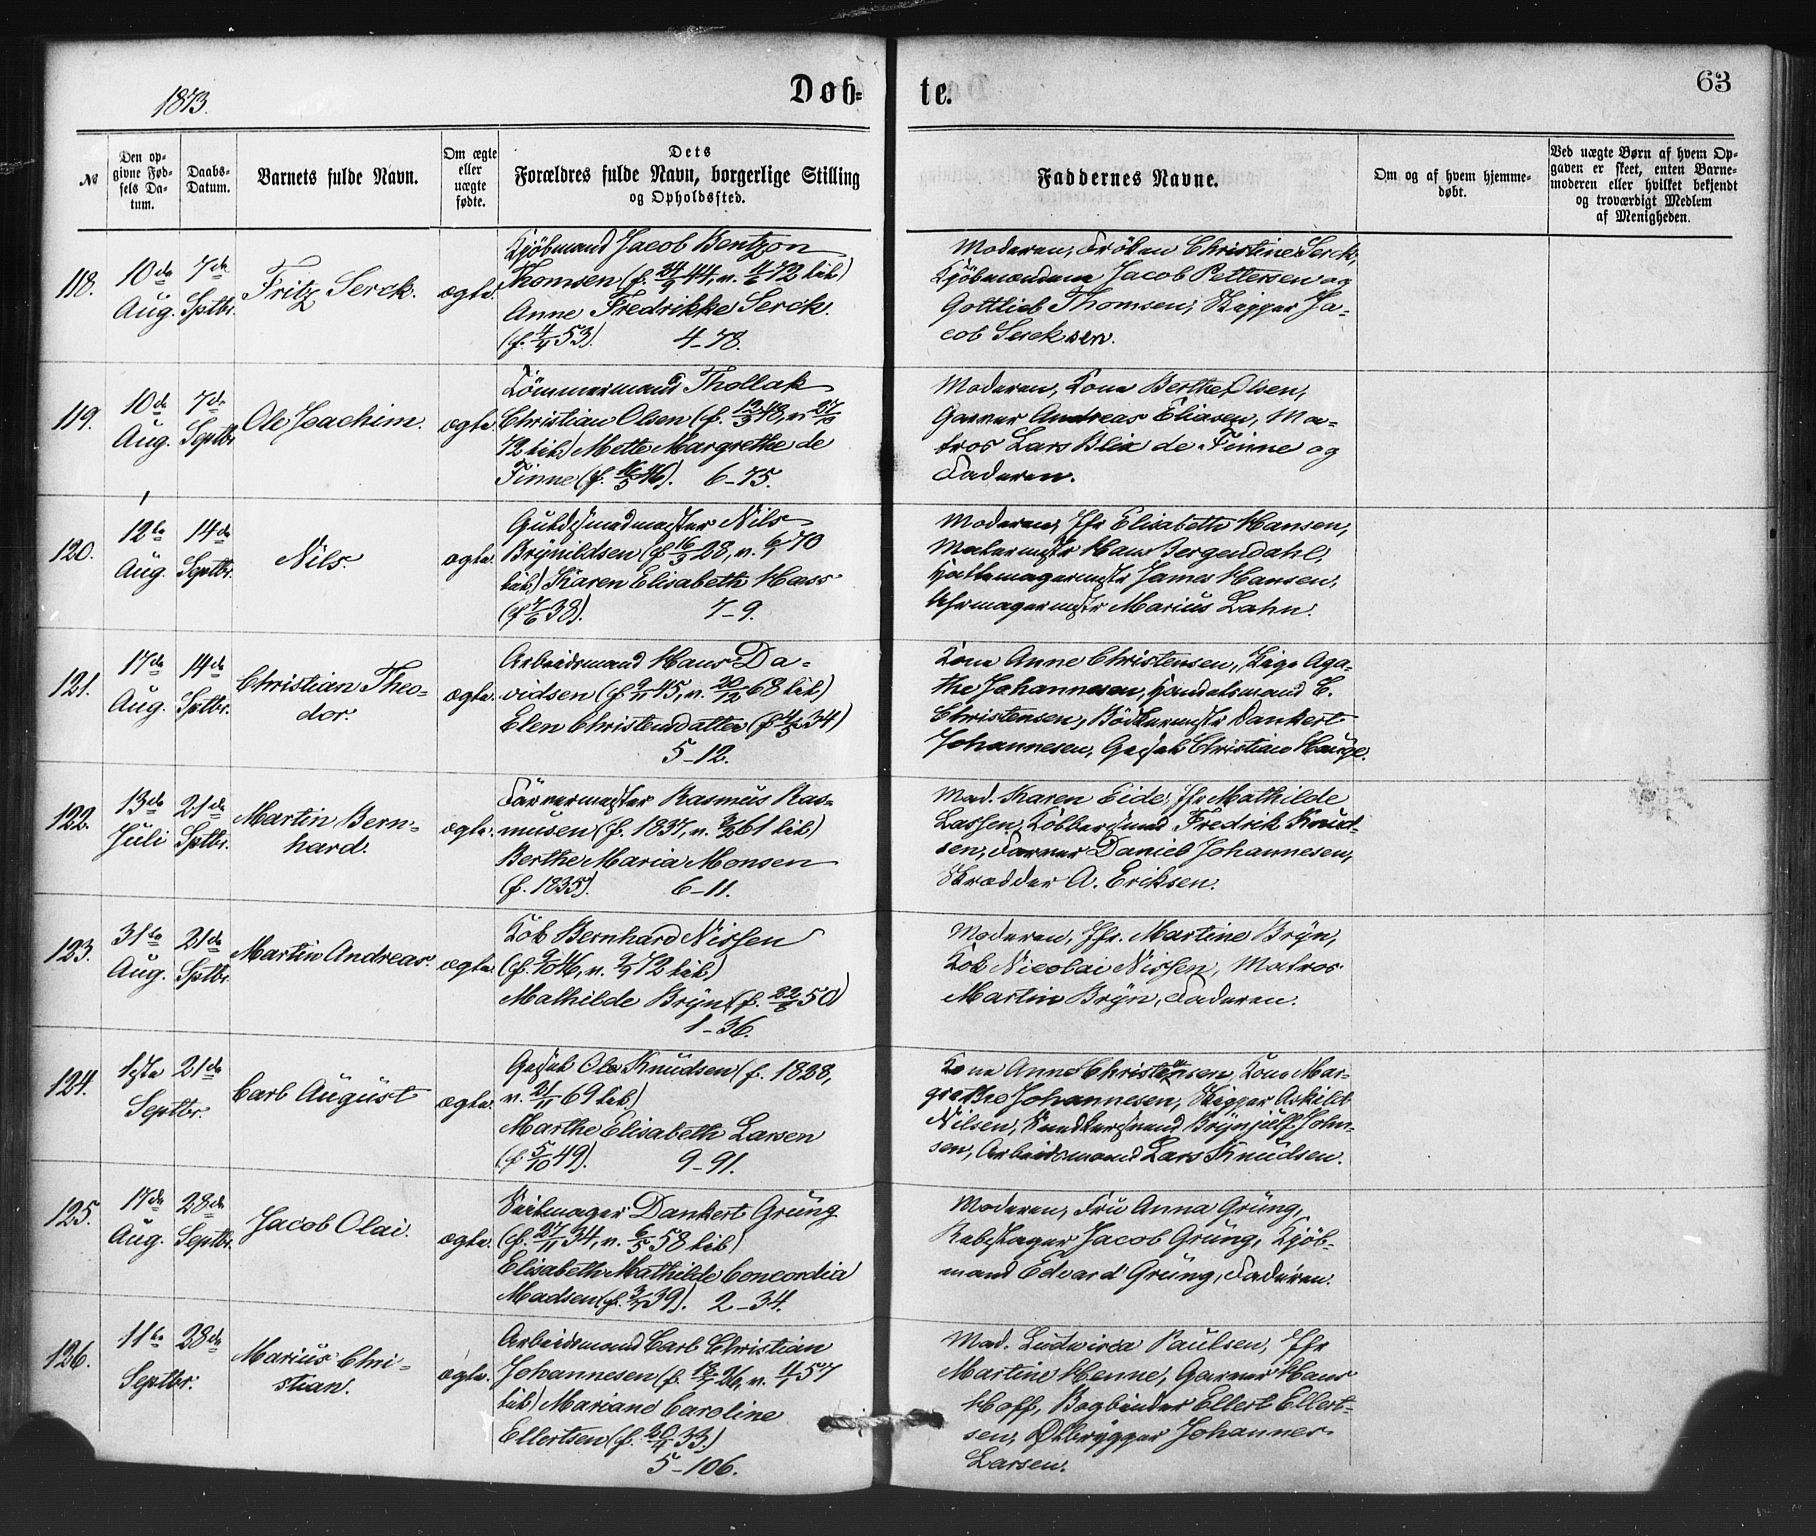 1873.
Døb-
te.
63
№
Den op-
givne Fød-
sels Da-
tum.
Daabs-
Datum.
Barnets fulde Navn.
Om ægte
eller
uægte
fødte.
Dets
Forældres fulde Navn, borgerlige Stilling
og Opholdssted.
Faddernes Navne.
Om og af hvem hjemme-
døbt.
Ved uægte Børn af hvem Op-
gaven er skeet, enten Barne-
moderen eller hvilket bekjendt
og troværdigt Medlem
af Menigheden.
118.
10de
Aug.
7de
Sptbr.
Fritz Serck.
ægte.
Kjöbmand Jacob Bentzon
Thomsen (f. 24/9 44, v. 4/6 72 til)
Anne Fredrikke Serck.
(f. 4/4 53). 4-78.
Moderen, Fröken Christine Serck,
Kjöbmændene Jacob Pettersen og
Gottlieb Thomsen, Skipper Ja-
cob Sercksen.
119.
10de
Aug.
7de
Septbr.
Ole Joachim.
ægte.
Tömmermand Thollak
Christian Olsen (f. 12/3 48, v. 27/10
72 til) Mette Margrethe de
Finne (f. 16/5 46). 6-75.
Moderen, Kone Berthe Olsen,
Garver Andreas Eliasen, Ma-
tros Lars Blix de Finne og
Faderen.
120.
12te
Aug.
14de
Septbr.
Nils.
ægte.
Guldsmedmester Nils
Brynildsen (f. 16/3 28, v. 6/1 70
til) Karen Elisabeth Hass
(f 7/6 38). 7-9.
Moderen, Jfr Elisabeth Hansen,
Malermstr Hans Bergendahl,
Hattemagermstr James Hansen,
Uhrmagermstr Marius Lahn.
121.
17de
Aug.
14de
Sptbr.
Christian Theo-
dor.
ægte.
Arbeidsmand Hans Da-
vidsen (f. 9/11 45, v. 20/12 68 til)
Elen Christensdatter (f. 4/5 34)
5-12.
Kone Anne Christensen, Pige Aga-
the Johannesen, Handelsmand C.
Christensen, Bödkermstr Dankert
Johannesen, Gesel Christian Hauge.
122.
13de
Juli
21de
Sptbr.
Martin Bern-
hard.
ægte.
Farvermester Rasmus Ras-
musen (f. 1837, v. 61 til)
Berthe Maria Monsen
(f. 1835). 6-11.
Mad. Karen Eide, Jfr Mathilde
Lassen, Kobbersmed Fredrik Knud-
sen, Farver Daniel Johannesen,
Skrædder A. Eriksen.
123.
31te
Aug.
21de
Sptbr.
Martin Andreas.
ægte.
Kok Bernhard Nissen
(f. 9/10 46, v. 72 til)
Mathilde Bryn (f. 22/6 50)
1-36.
Moderen, Jfr. Martine Bryn,
Kok Nicolai Nissen, Matros
Martin Bryn, Faderen.
124.
1ste
Septbr.
21de
Carl August
ægte.
Gesel Ole Knudsen (f. 1828,
v. 21/11 69 til)
Marthe Elisabeth Larsen
(f. 5/10 49). 9-91.
Kone Anne Christensen, Kone Mar-
grethe Johannesen, Skipper Askild
Nilsen, Snedkersvend Brynjulf John-
sen, Arbeidsmand Lars Knudsen.
125.
17de
Aug.
28de
Septbr.
Jacob Olai.
ægte.
Seilmager Dankert Grung
(f. 27/11 34, v. 6/5 58 til)
Elisabeth Mathilde Concordia
Madsen (f. 39). 2-34.
Moderen, Fru Anna Grung,
Rebslager Jacob Grung, Kjöb-
mand Edvard Grung, Faderen.
126.
11te
Septbr.
28de
Marius Chri-
stian.
ægte.
Arbeidsmand Carl Christian
Johannesen (f. 26, v. 57
til) Mariane Caroline
Ellertsen (f. 20/4 33.)
5-106.
Mad. Ludvisca Paulsen, Jfr
Martine Henne, Garver Hans
Hoff, Bogbinder Ellert Ellert-
sen, Ølbrygger Johannes
Larsen.